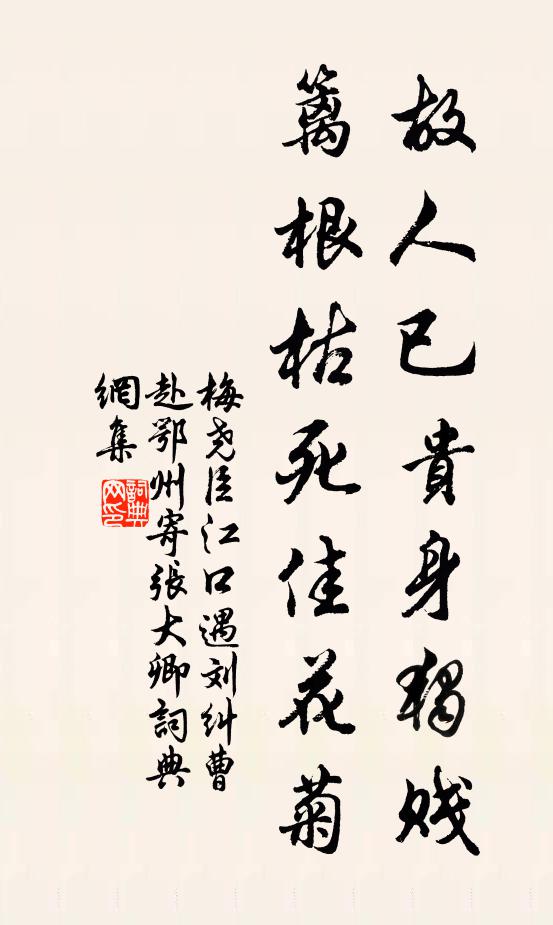 故人已貴身獨贱
籬根枯死佳花菊
梅尧臣江口遇刘纠曹
赴鄂州寄張大卿詞典
網集
詞典
网印